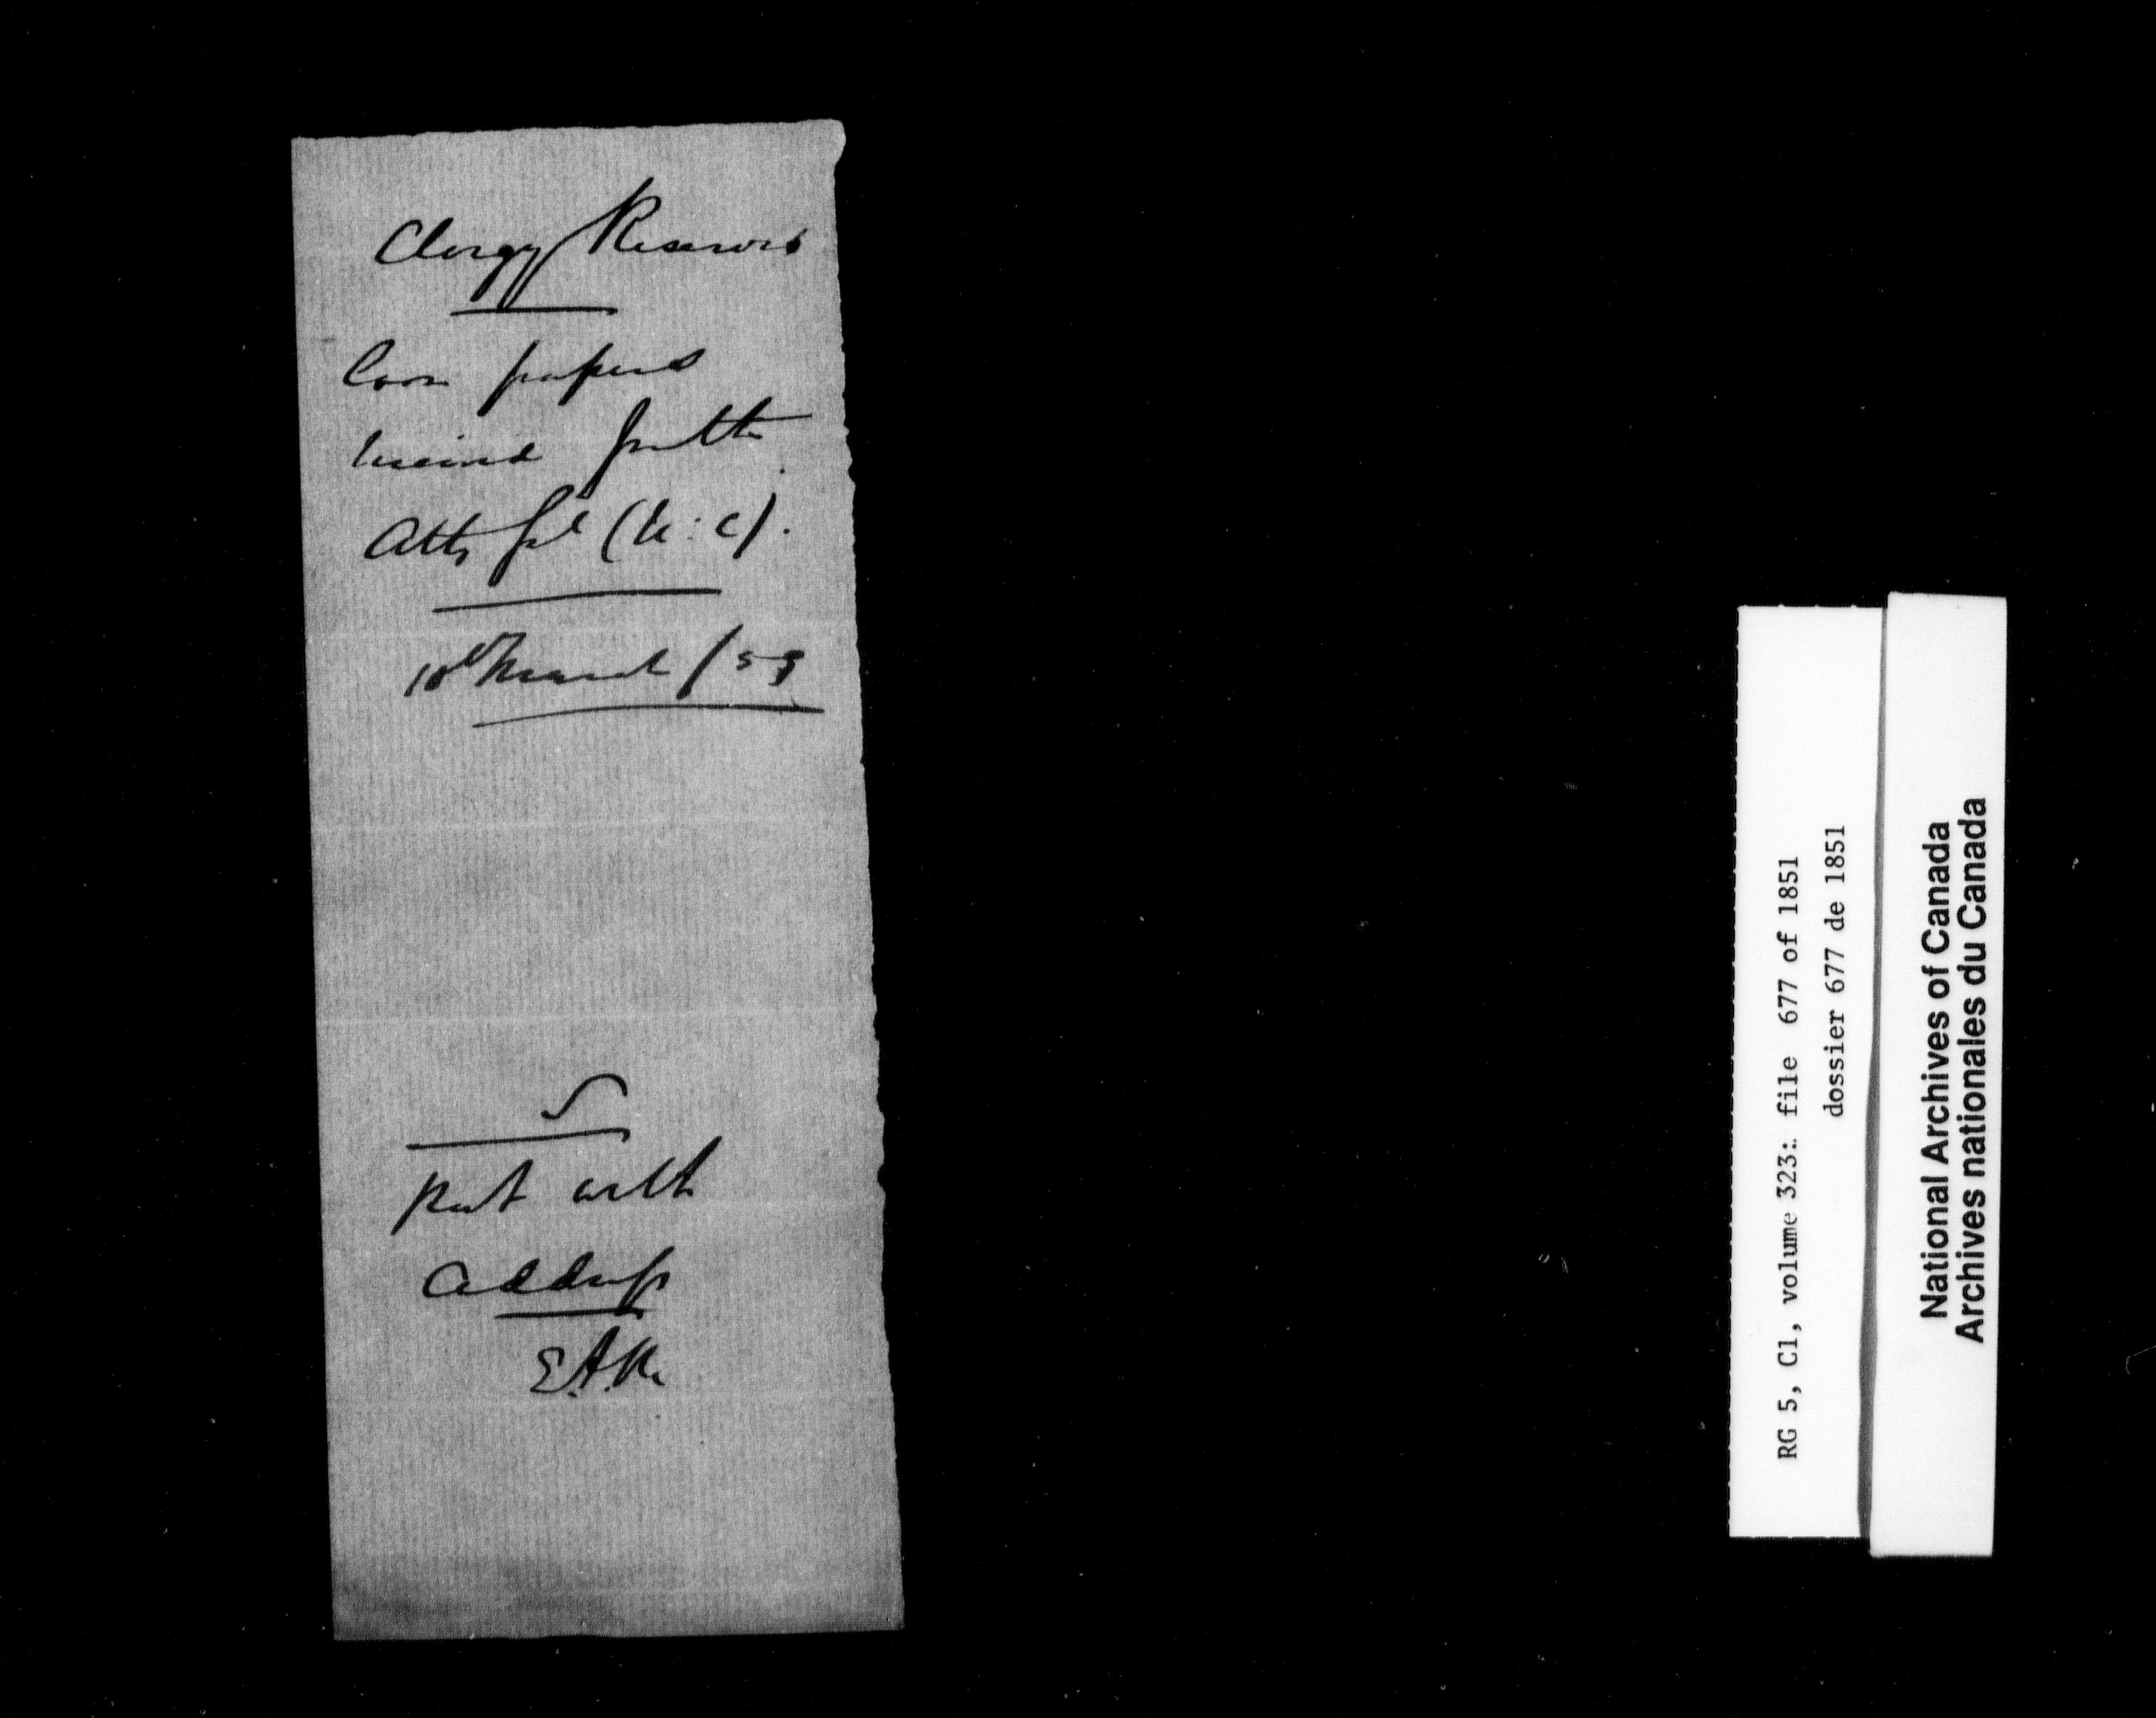 Clergy Reserves
papers
received from the
Atty Genl (U:C).
10th March /53
put with
Address
E.A.M.
RG 5, C1, volume 323: file 677 of 1851
dossier 677 de 1851
National Archives of Canada
Archives nationales du Canada